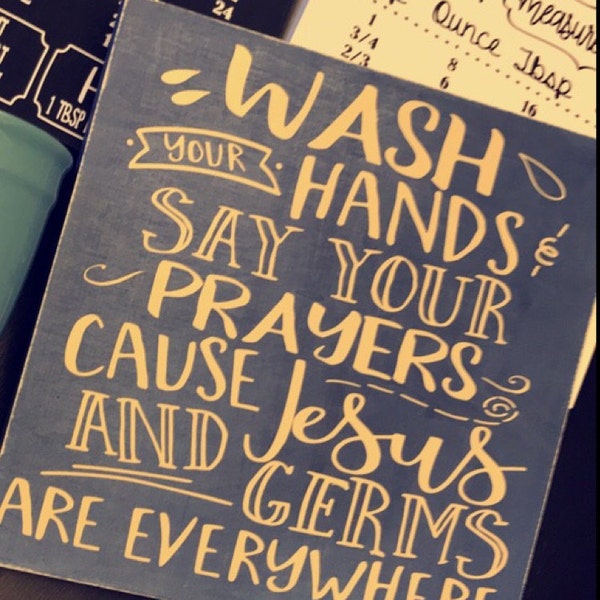 WASH
YOUR
HANDS &
SAY YOUR
PRAYERS
CAUSE Jesus
AND GERMS
ARE EVERYWHERE
24
1 TBSP
measure
Ounce Tbsp
1 8
3/4 6 16
2/3